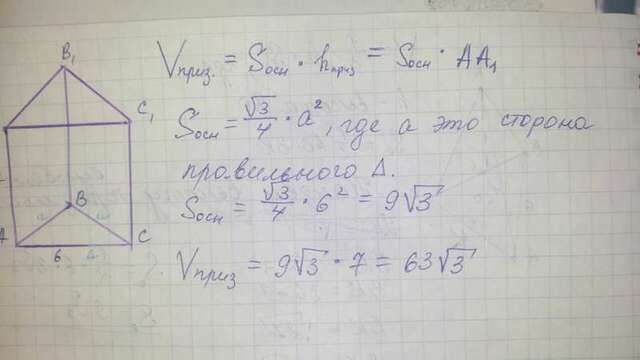 B₁
C₁
B
A
C
6
Vприз. = Sосн · hприз = Sосн · AA₁
Sосн = √3/4 · a², где a это сторона
правильного Δ.
Sосн = √3/4 · 6² = 9√3
Vприз = 9√3 · 7 = 63√3